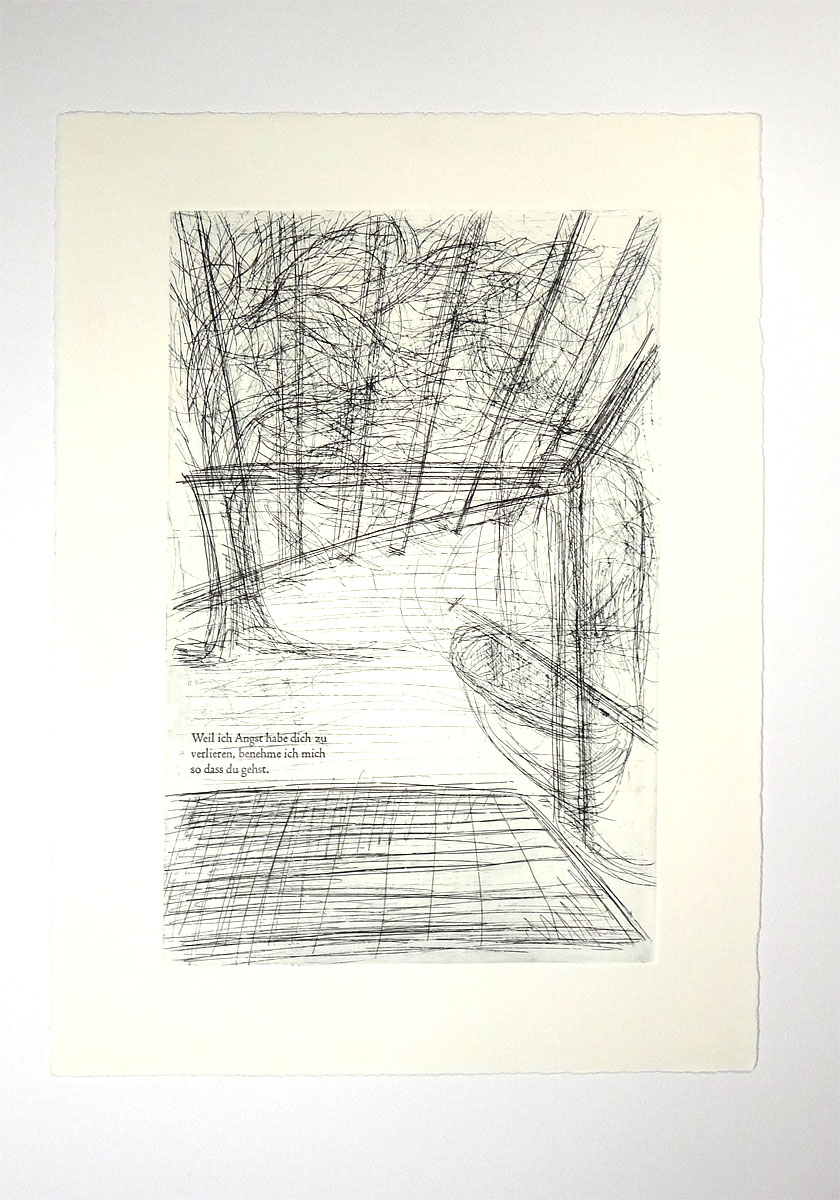 Weil ich Angst habe dich zu
verlieren, benehme ich mich
so dass du gehst.